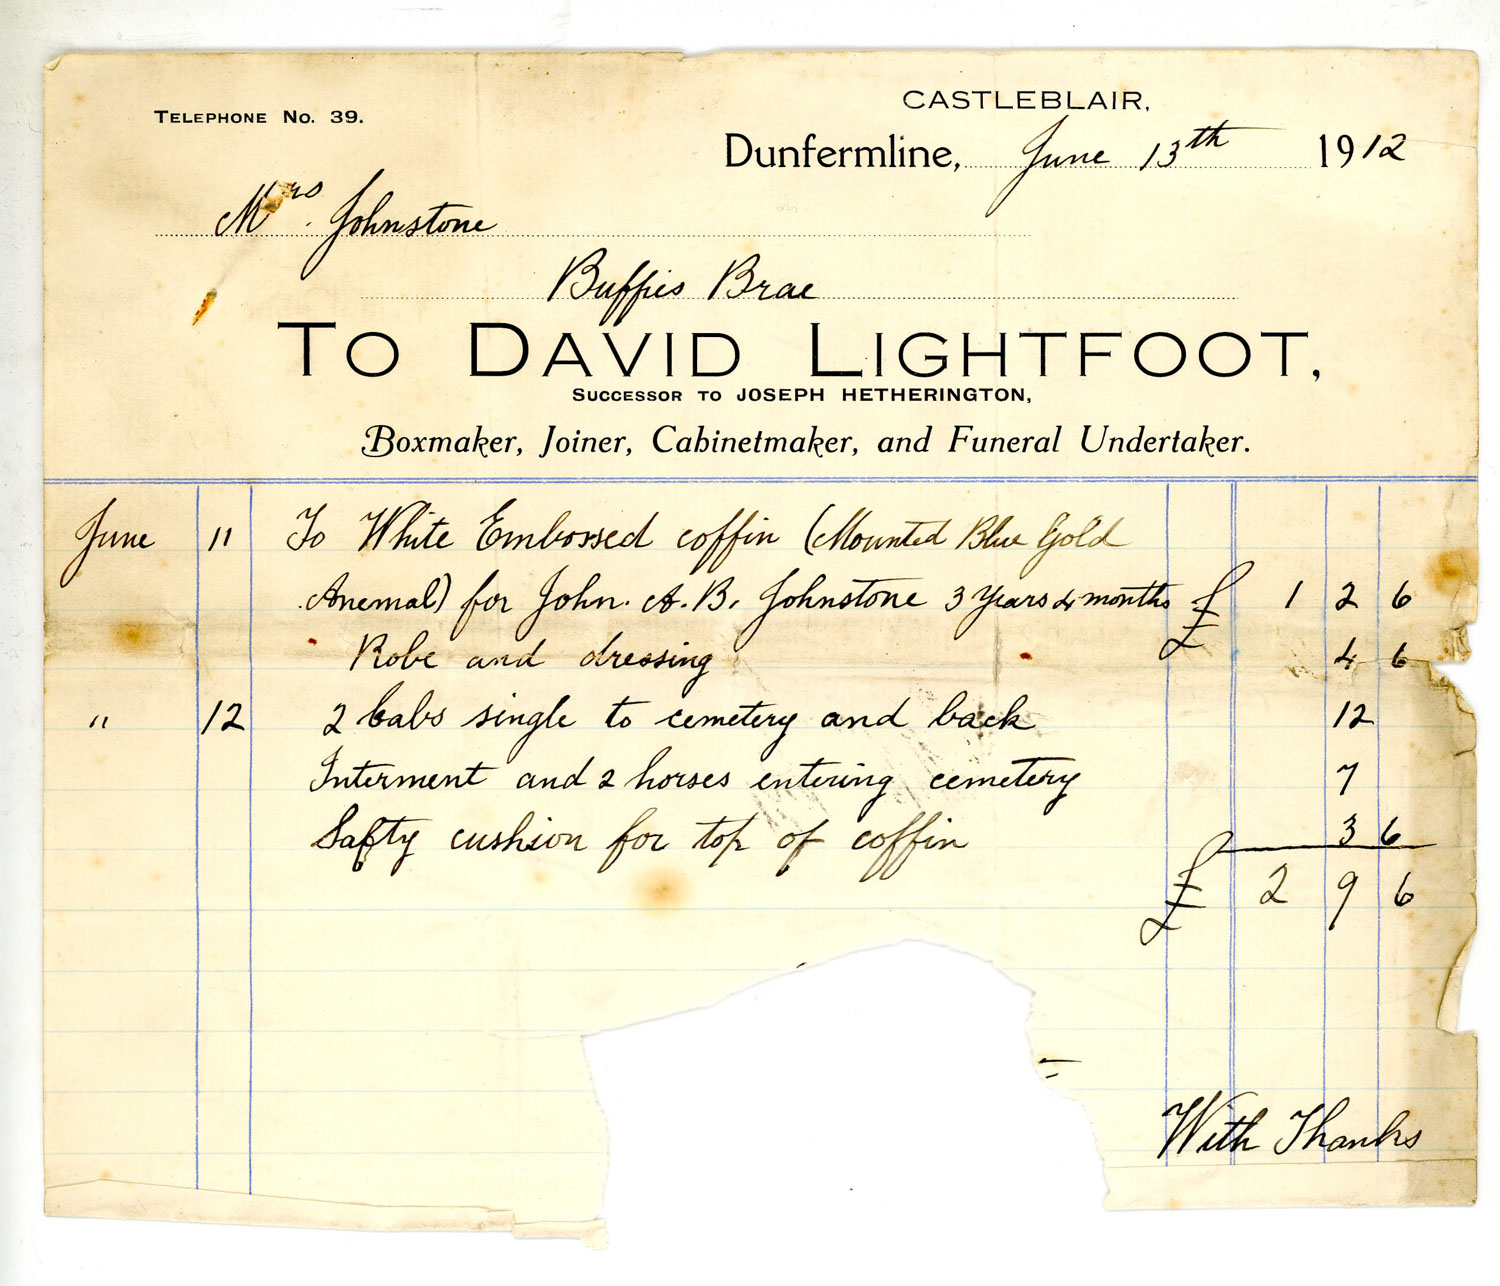 TELEPHONE No. 39.
CASTLEBLAIR,
Dunfermline, June 13th 1912
Mrs. Johnstone
Buffies Brae
TO DAVID LIGHTFOOT,
SUCCESSOR TO JOSEPH HETHERINGTON,
Boxmaker, Joiner, Cabinetmaker, and Funeral Undertaker.
June 11 To White Embossed coffin (Mounted Blue Gold
Anemal) for John. A. B. Johnstone 3 Years 4 months £ 1 2 6
Robe and dressing 4 6
" 12 2 Cabs single to cemetery and back 12
Interment and 2 horses entering cemetery 7
Safty cushion for top of coffin 3 6
£ 2 9 6
With Thanks